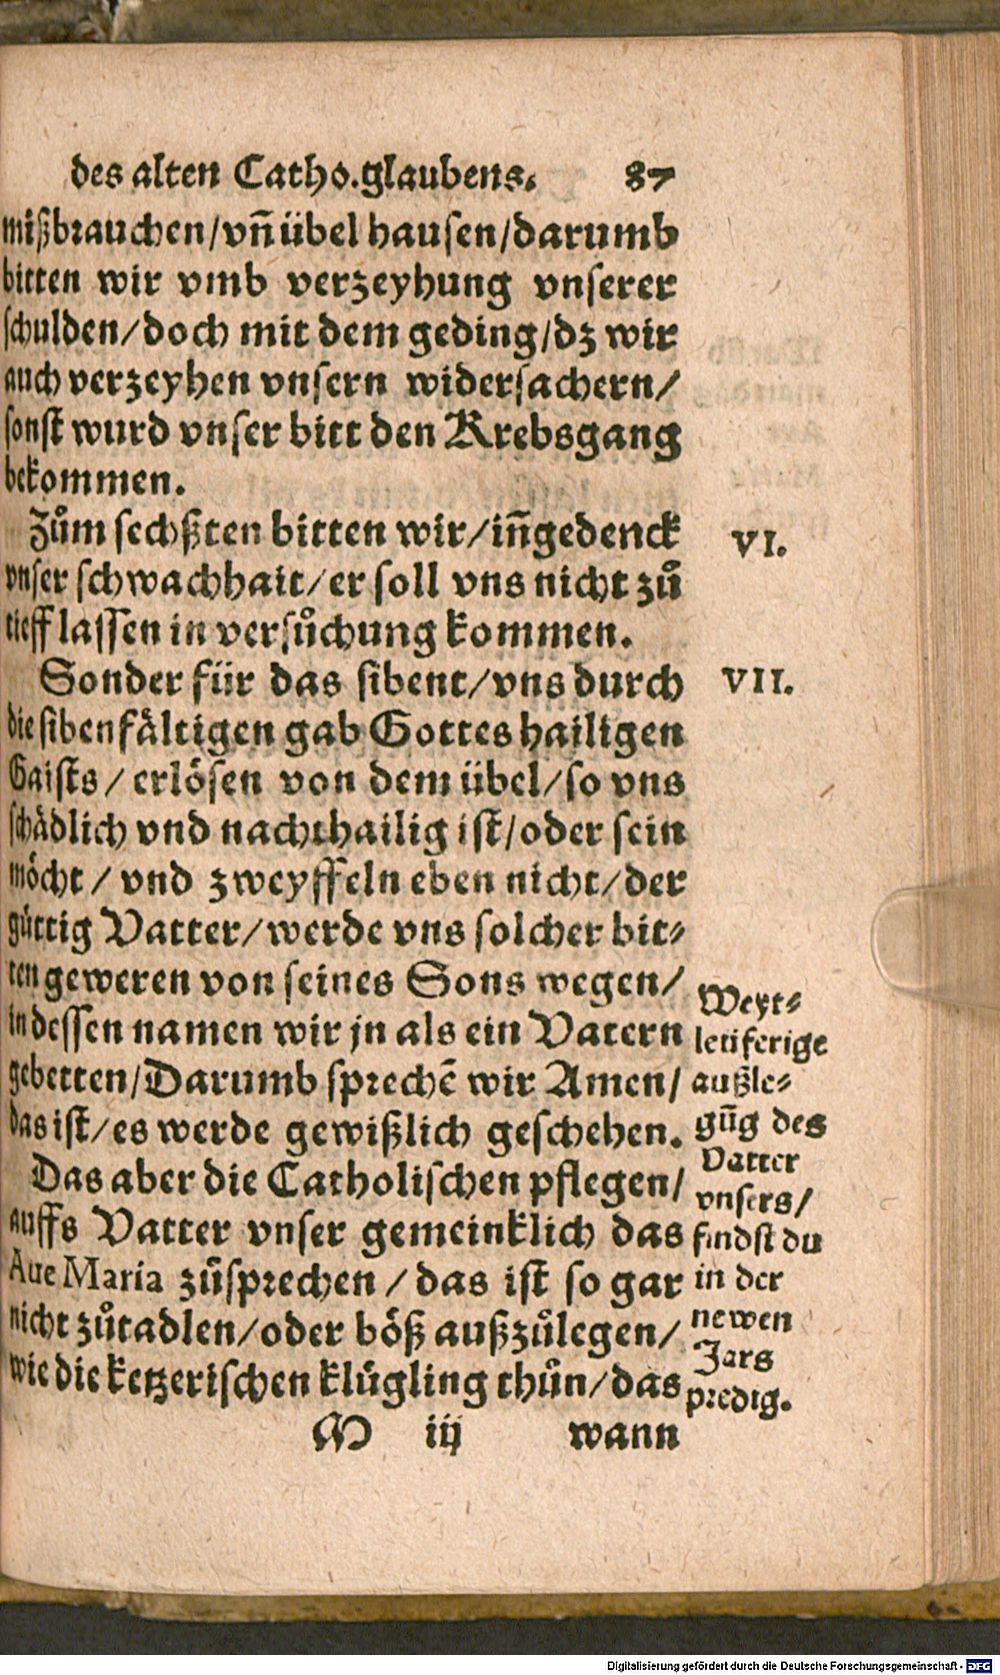 des alten Catho.glaubens. 87
mißbrauchen/vn̄ übel hausen/darumb
bitten wir vmb verzeyhung vnserer
schulden/doch mit dem geding/dz wir
auch verzeyhen vnsern widersachern/
sonst wurd vnser bitt den Krebsgang
bekommen.
Zům sechßten bitten wir/in̄gedenck
vnser schwachhait/er soll vns nicht zů
tieff lassen in versůchung kommen.
VI.
Sonder für das sibent/vns durch
die sibenfältigen gab Gottes hailigen
Gaists/ erlösen von dem übel/so vns
schädlich vnd nachthailig ist/oder sein
möcht/ vnd zweyffeln eben nicht/der
güttig Vatter/werde vns solcher bit-
ten geweren von seines Sons wegen/
in dessen namen wir jn als ein Vatern
gebetten/Darumb sprechē wir Amen/
das ist/es werde gewißlich geschehen.
VII.
Das aber die Catholischen pflegen/
auffs Vatter vnser gemeinklich das
Aue Maria zůsprechen/ das ist so gar
nicht zůtadlen/oder böß außzůlegen/
wie die ketzerischen klügling thůn/das
Weyt-
leüferige
außle-
gūg des
Vatter
vnsers/
findst du
in der
newen
Jars
predig.
M iij wann
Digitalisierung gefördert durch die Deutsche Forschungsgemeinschaft - DFG